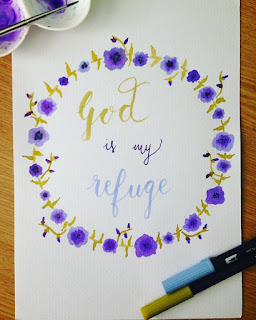 God
is my
refuge